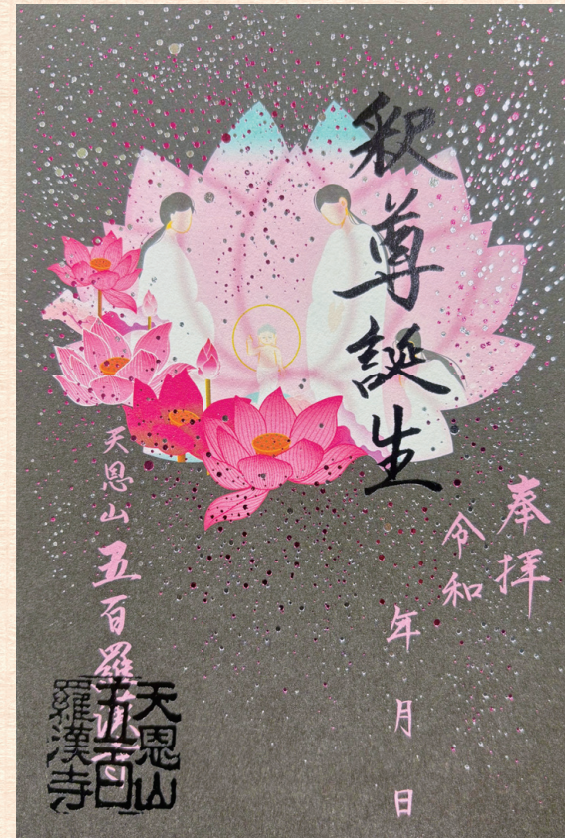 奉拝
令和
年 月 日
釈尊誕生
天恩山 五百羅漢寺
天恩山
五百
羅漢寺